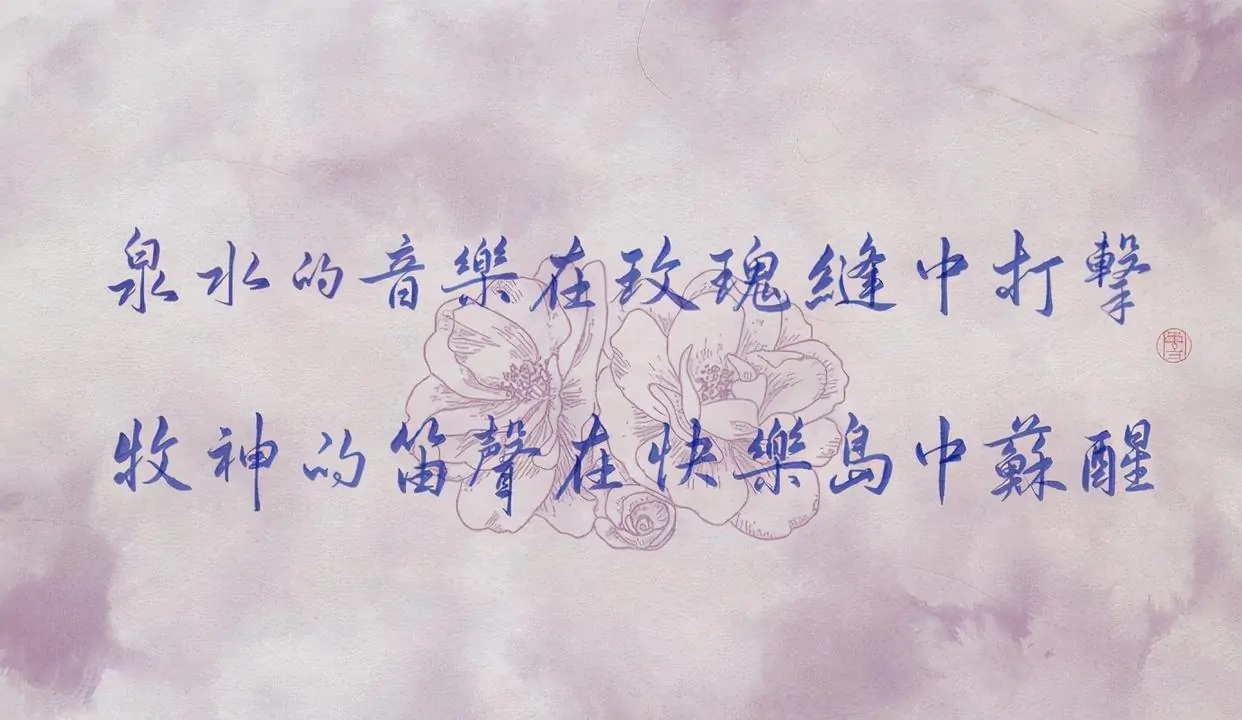 泉水的音樂在玫瑰縫中打擊
牧神的笛聲在快樂島中蘇醒